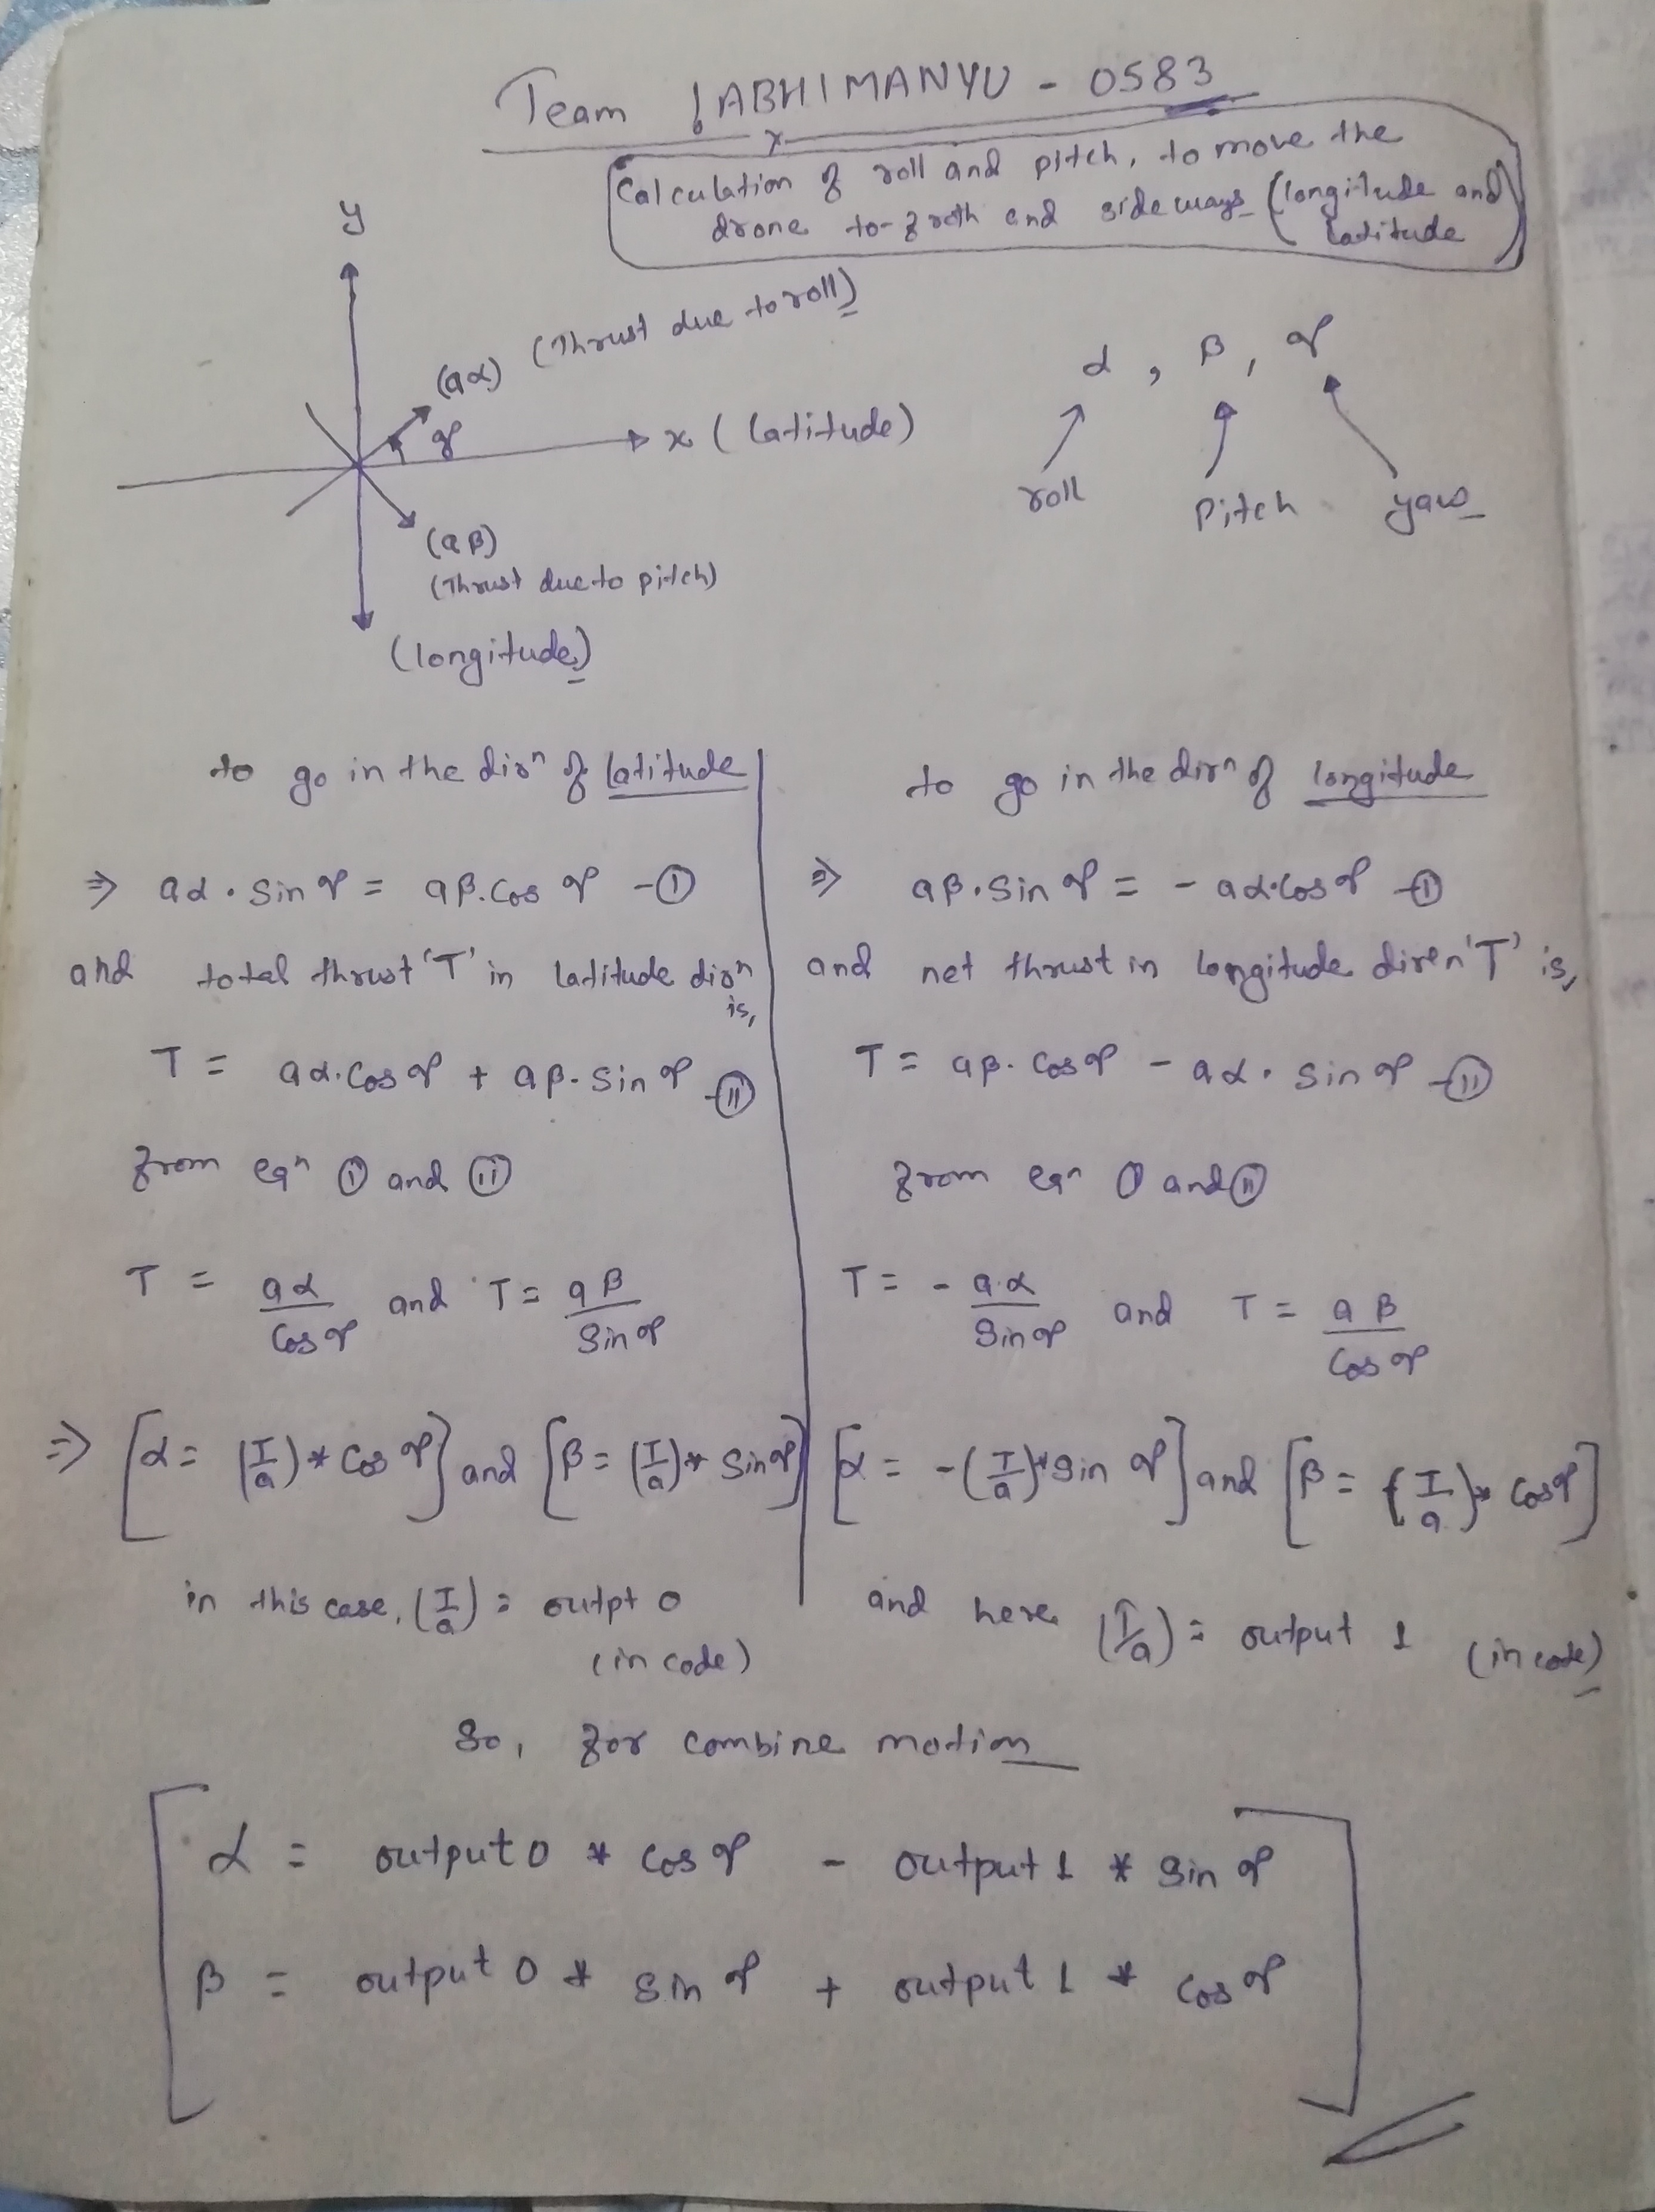 Team ! ABHIMANYU - 0583
Calculation of roll and pitch, to move the
drone to-froth and sideways (longitude and
latitude)
y
(aα) (Thrust due to roll)
γ
x (latitude)
(aβ)
(Thrust due to pitch)
(longitude)
α , β , γ
roll Pitch yaw
to go in the dirⁿ of latitude
⇒ aα . Sin γ = aβ . Cos γ - ①
and total thrust 'T' in latitude dirⁿ
is,
T = aα . Cos γ + aβ . Sin γ - ⑪
from eqⁿ ① and ⑪
T = aα/Cos γ and T = aβ/Sin γ
⇒ [α = (T/a) * Cos γ] and [β = (T/a) * Sin γ]
in this case, (T/a) = outpt 0
(in code)
to go in the dirⁿ of longitude
⇒ aβ . Sin γ = - aα . Cos γ - ①
and net thrust in longitude diren 'T' is,
T = aβ . Cos γ - aα . Sin γ - ⑪
from eqⁿ ① and ⑪
T = - a.α/Sin γ and T = aβ/Cos γ
[α = - (T/a) * Sin γ] and [β = (T/a) * Cos γ]
and here (T/a) = output 1 (in code)
So, for combine motion
α = output 0 * Cos γ - output 1 * Sin γ
β = output 0 * Sin γ + output 1 * Cos γ